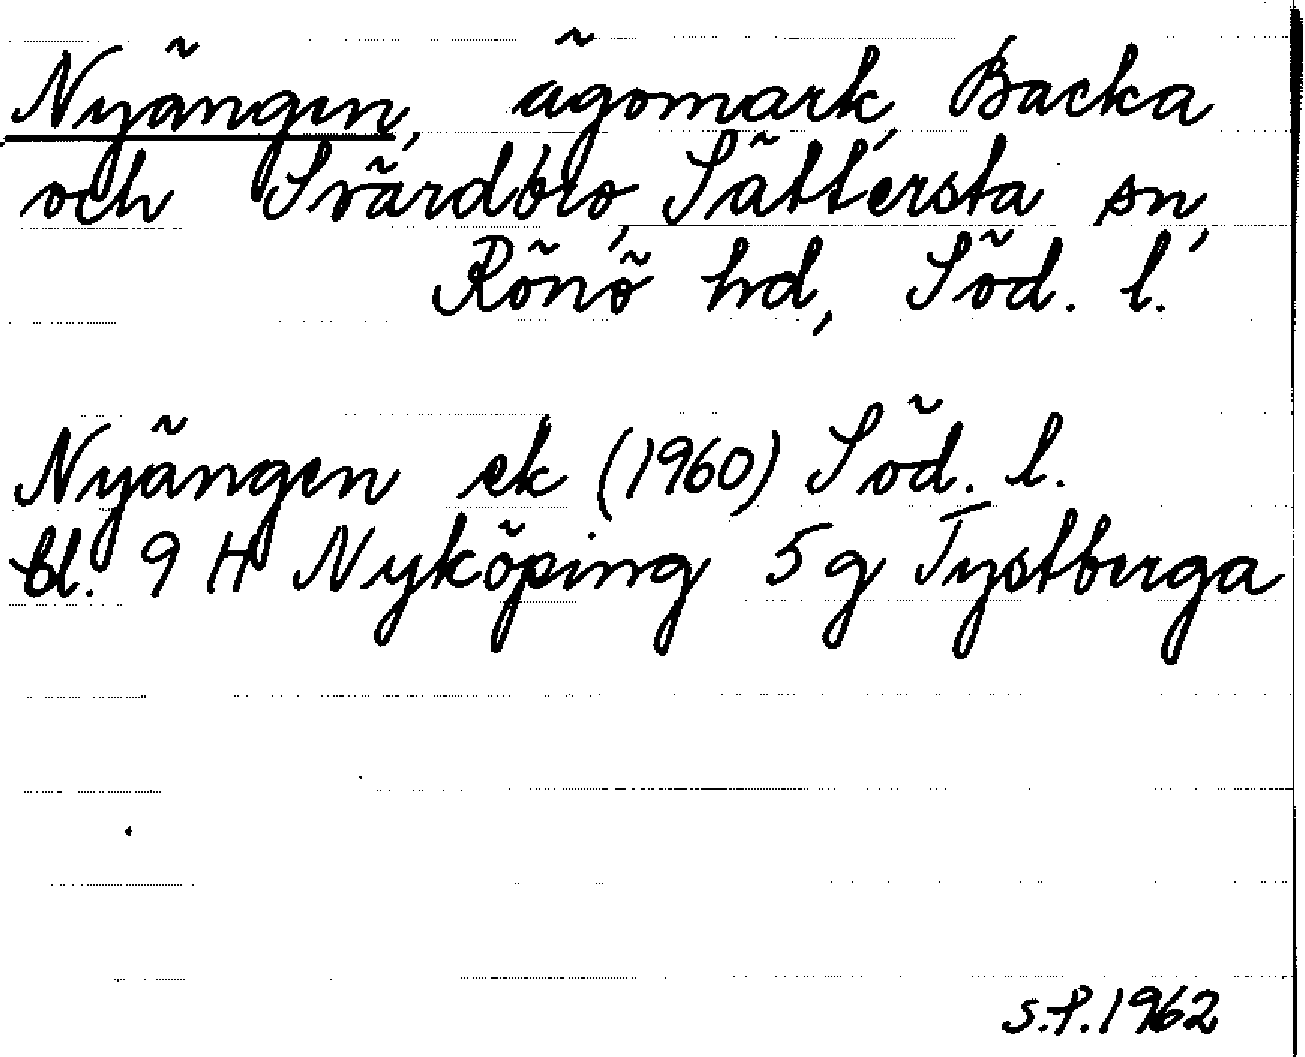 Nyängen, ägomark, Backa
och Svärdbro, Sättersta sn,
Rönö hd, Söd. l.
Nyängen ek (1960) Söd. l.
bl. 9 H Nyköping 5 g Tystberga
S.P. 1962